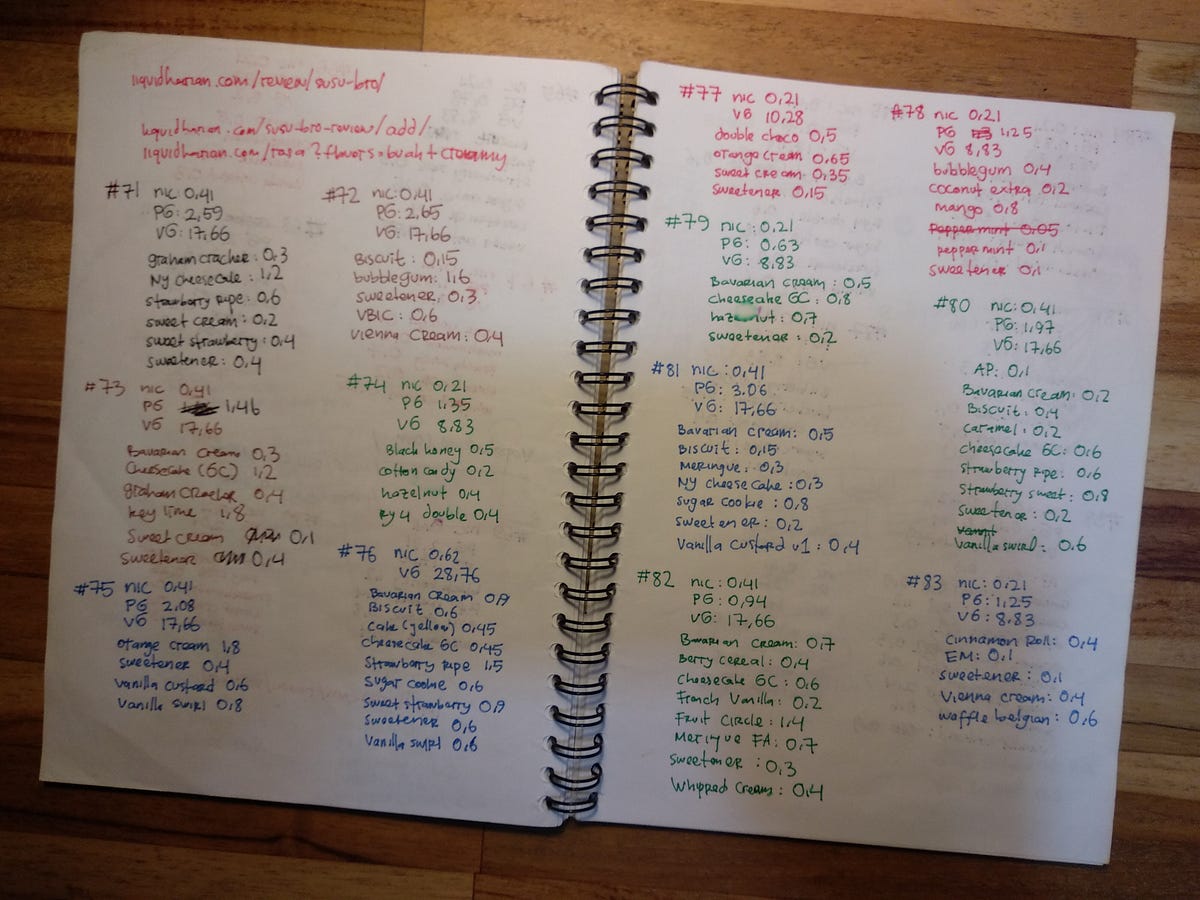 liquidharian.com/review/susu-bro/
liquidharian.com/susu-bro-review/add/
liquidharian.com/rasa?flavors=buah+creamy
#71 nic: 0,41
PG: 2,59
VG: 17,66
graham cracker: 0,3
NY cheesecake: 1,2
strawberry ripe: 0,6
sweet cream: 0,2
sweet strawberry: 0,4
sweetener: 0,4
#72 nic: 0,41
PG: 2,65
VG: 17,66
Biscuit: 0,15
bubblegum: 1,6
sweetener: 0,3
VBIC: 0,6
Vienna Cream: 0,4
#73 nic 0,41
PG 1,46
VG 17,66
Bavarian Cream 0,3
Cheesecake (GC) 1,2
graham cracker 0,4
key lime 1,8
Sweet cream 0,1
Sweetener 0,4
#74 nic 0,21
PG 1,35
VG 8,83
Black honey 0,5
cotton candy 0,2
hazelnut 0,4
RY4 double 0,4
#75 nic 0,41
PG 2,08
VG 17,66
orange cream 1,8
sweetener 0,4
vanilla custard 0,6
Vanilla swirl 0,8
#76 nic 0,62
VG 28,76
Bavarian Cream 0,9
Biscuit 0,6
cake (yellow) 0,45
cheesecake GC 0,45
Strawberry ripe 1,5
Sugar cookie 0,6
Sweet strawberry 0,9
Sweetener 0,6
Vanilla swirl 0,6
#77 nic 0,21
VG 10,28
double choco 0,5
orange cream 0,65
sweet cream 0,35
sweetener 0,15
#78 nic 0,21
PG 1,25
VG 8,83
bubblegum 0,4
coconut extra 0,2
mango 0,8
Peppermint 0,05
peppermint 0,1
sweetener 0,1
#79 nic: 0,21
PG: 0,63
VG: 8,83
Bavarian cream: 0,5
cheesecake GC: 0,8
hazelnut: 0,7
sweetener: 0,2
#80 nic: 0,41
PG: 1,97
VG: 17,66
AP: 0,1
Bavarian Cream: 0,2
Biscuit: 0,4
caramel: 0,2
cheesecake GC: 0,6
strawberry ripe: 0,6
Strawberry sweet: 0,8
Sweetener: 0,2
Vanilla swirl: 0,6
#81 nic: 0,41
PG: 3,06
VG: 17,66
Bavarian cream: 0,5
Biscuit: 0,15
Meringue: 0,3
NY cheesecake: 0,3
sugar cookie: 0,8
sweetener: 0,2
Vanilla Custard v1: 0,4
#82 nic: 0,41
PG: 0,94
VG: 17,66
Bavarian cream: 0,7
Berry cereal: 0,4
Cheesecake GC: 0,6
French Vanilla: 0,2
Fruit Circle: 1,4
Meringue FA: 0,7
sweetener: 0,3
Whipped Cream: 0,4
#83 nic: 0,21
PG: 1,25
VG: 8,83
Cinnamon Roll: 0,4
EM: 0,1
sweetener: 0,1
Vienna cream: 0,4
waffle belgian: 0,6